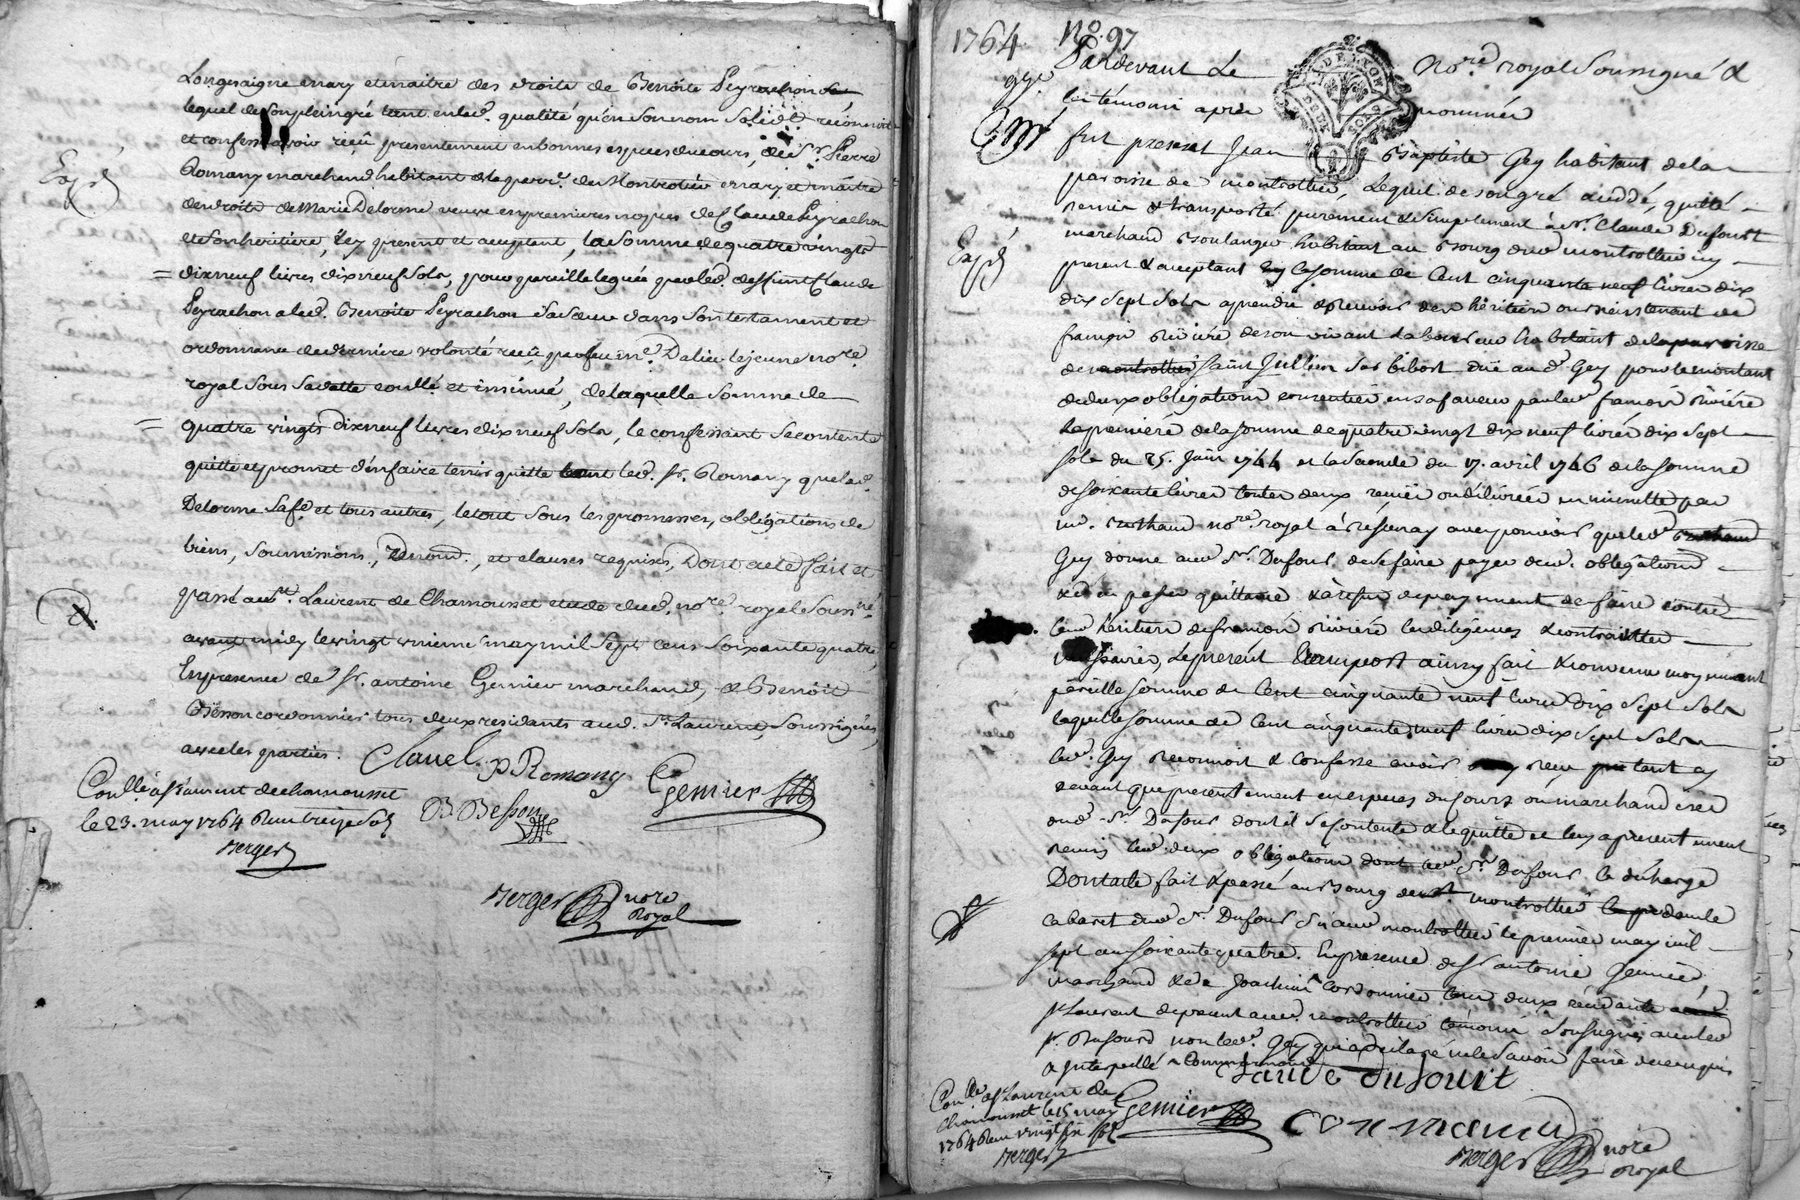 Longesaigne mary et maitre des droits de Benoite Peyrachon
lequel de son plein gré tant en lad. qualité qu'en son nom solidt. reconnoit
et confesse avoir reçû presentement en bonnes espèces du cours, de Sr. Pierre
Romany marchand habitant de la parr. de Montrotier mary et maitre
Expé
des droits de Marie Delorme veuve en premieres noces de Claude Peyrachon
et son heritiere, icy present et aceptant, la somme de quatre vingts
= dix neuf livres dix neuf sols, pour pareille leguée par led. deffunt Claude
Peyrachon a lad. Benoite Peyrachon sa sœur dans son testament et
ordonnance de derniere volonté reçû par feu me. Dalin lejeune nore.
royal sous sa datte conllé et insinué, de laquelle somme de
= quatre vingts dix neuf livres dix neuf sols, le confessant se contente
quitte et promet d'en faire tenir quitte tant led. sr. Romany que lad.
Delorme sa fe et tous autres, le tout sous les promesses, obligations de
biens, soumissions, renonc., et clauses requises, Dont acte fait et
passé a St. Laurent de Chamousset etude dud. nore. royal soussné
avant midy le vingt unieme may mil sept cens soixante quatre,
En presence de sr. antoine Gemier marchand, & Benoit
Besson cordonnier tous deux residants aud. St. Laurent, soussignés,
avec les parties. Clavel P Romany Gemier
Conllé à St Laurent de chamousset
le 23. may 1764 Reçu treize sols
B. Besson
Berger
Berger nore
Royal
1764 No. 97
Pardevant Le nore. royal soussigné &
les témoins après nommés
fut present Jean Baptiste Gey habitant de la
paroisse de montrottier, Lequel de son gré a cédé, quitté
remis & transporté purement & simplement à sr. Claude Dufourt
marchand Boulanger habitant au Bourg dud montrottier icy
Expé
present & acceptant la somme de Cent cinquante neuf livres dix
dix sept sols a prendre & percevoir des héritiers ou bien tenant de
françois Rivière de son vivant laboureur habitant de la paroisse
de montrottier saint Jullien sur bibost düe au d. Gey pour le montant
de deux obligations consenties en sa faveur par led françois Rivière
la premiere de la somme de quatre vingt dix neuf livres dix sept
sols du 25. Juin 1744 et la seconde du 17. avril 1746 de la somme
de soixante livres toutes deux
me. nore. royal à Bessenay avec pouvoir que led
Gey donne aud Sr. Dufour de se faire payer desd. obligations
& d'en passer quittance & à refus de payement de faire contre
les héritiers de françois Rivière les diligences & contraintes
necessaires, Le present transport ainsy fait & convenu moyenant
pareille somme de Cent cinquante neuf livres dix sept sols
laquelle somme de Cent cinquante neuf livres dix sept sols
led. Gey reconnoit & confesse avoir reçu tant cy
devant que presentement en especes du cours
dud. Sr. Dufour dont il se contente & le quitte et luy a presentement
remis lesd. deux obligations dont led Sr. Dufour le décharge
Dont acte fait & passé au Bourg de montrottier
cabaret dud Sr. Dufour aud montrottier le premier may mil
sept cens soixante quatre. En presence de Sr antoine Gemier,
marchand & de Joachim cordonnier tous deux residants
St Laurent de present aud. montrottier témoins soussignés avec led
sr. Dufourd non led. Gey qui a declaré ne le savoir faire de ce enquis
& interpellé
Claude dufourt
Conllé à St Laurent de
Chamousset le 15 may
1764 Reçu vingt six sols
Berger
Gemier
Commarmond
Berger nore
Royal